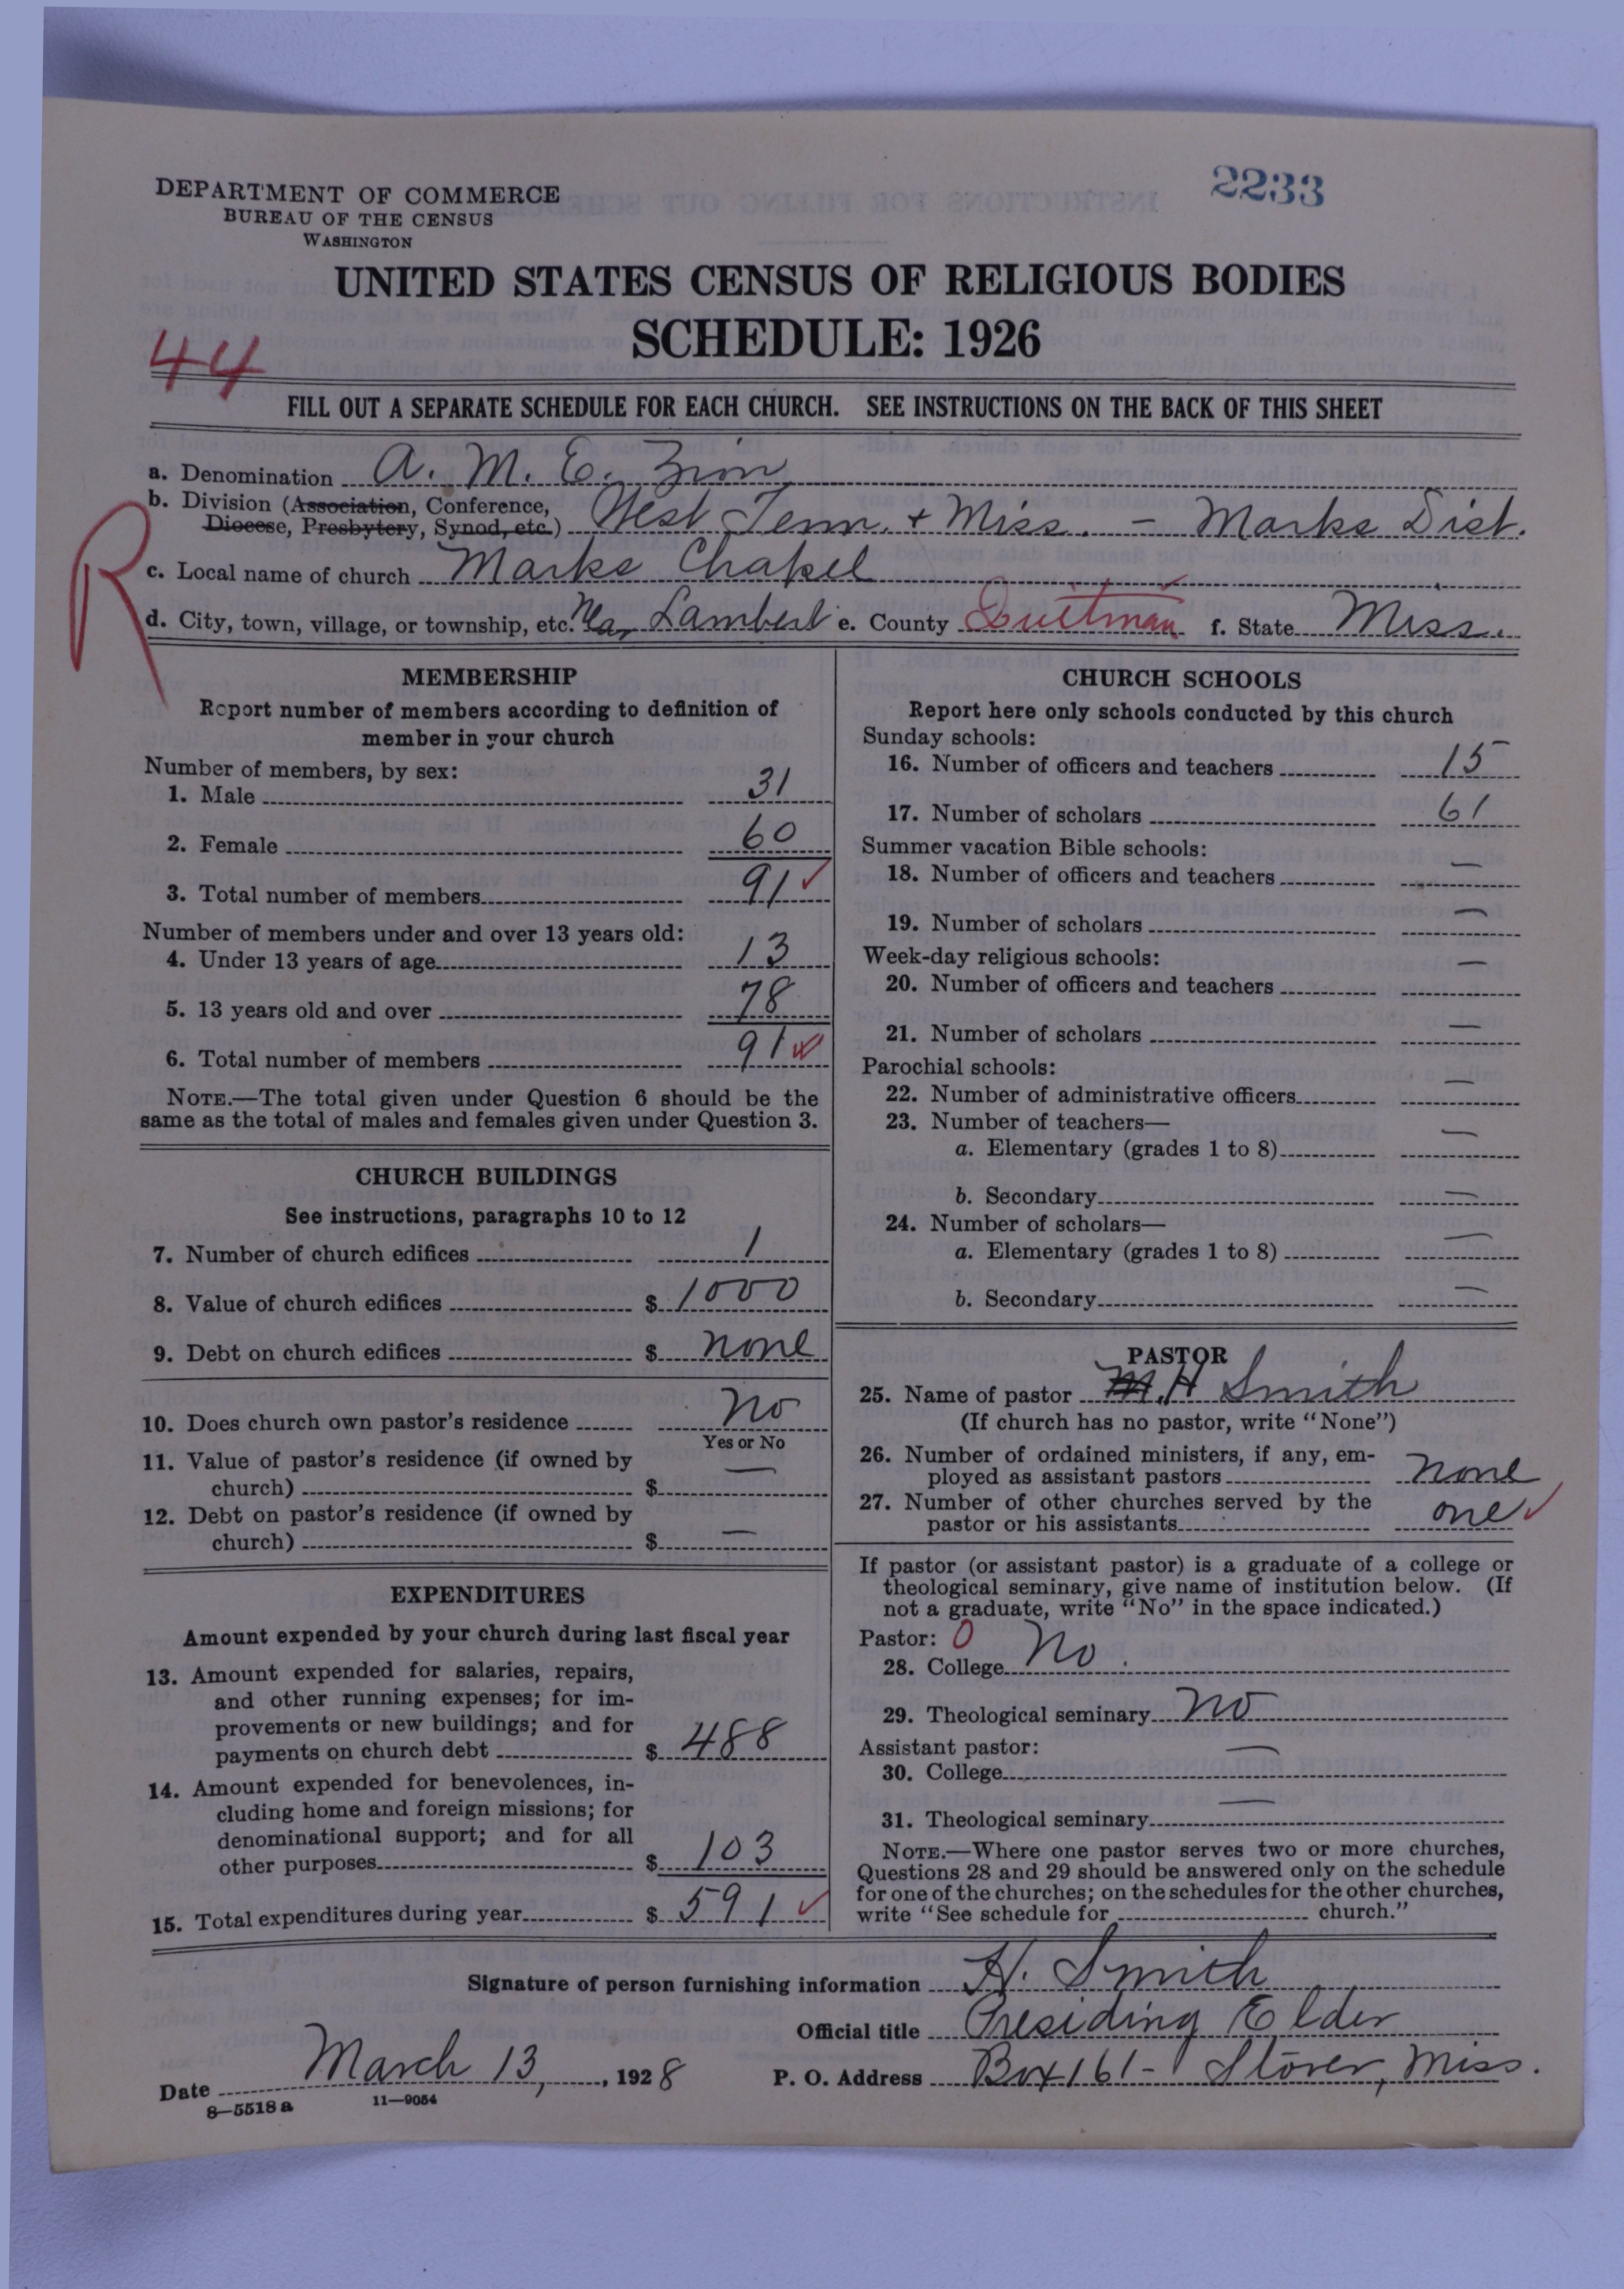 DEPARTMENT OF COMMERCE
BUREAU OF THE CENSUS
WASHINGTON
2233
UNITED STATES CENSUS OF RELIGIOUS BODIES
SCHEDULE: 1926
44
FILL OUT A SEPARATE SCHEDULE FOR EACH CHURCH. SEE INSTRUCTIONS ON THE BACK OF THIS SHEET
a. Denomination A. M. E. Zion
b. Division (Association, Conference,
Diocese, Presbytery, Synod, etc.) West Tenn. + Miss. - Marks Dist.
R
c. Local name of church Marks Chapel
d. City, town, village, or township, etc. Near Lambert e. County Quitman f. State Miss.
MEMBERSHIP
Report number of members according to definition of
member in your church
Number of members, by sex:
1. Male 31
2. Female 60
3. Total number of members 91
Number of members under and over 13 years old:
4. Under 13 years of age 13
5. 13 years old and over 78
6. Total number of members 91
NOTE.—The total given under Question 6 should be the
same as the total of males and females given under Question 3.
CHURCH BUILDINGS
See instructions, paragraphs 10 to 12
7. Number of church edifices 1
8. Value of church edifices $ 1000
9. Debt on church edifices $ none
10. Does church own pastor's residence No
Yes or No
11. Value of pastor's residence (if owned by
church) $ —
12. Debt on pastor's residence (if owned by
church) $ —
EXPENDITURES
Amount expended by your church during last fiscal year
13. Amount expended for salaries, repairs,
and other running expenses; for im-
provements or new buildings; and for
payments on church debt $ 488
14. Amount expended for benevolences, in-
cluding home and foreign missions; for
denominational support; and for all
other purposes $ 103
15. Total expenditures during year $ 591
CHURCH SCHOOLS
Report here only schools conducted by this church
Sunday schools:
16. Number of officers and teachers 15
17. Number of scholars 61
Summer vacation Bible schools:
18. Number of officers and teachers —
19. Number of scholars —
Week-day religious schools:
20. Number of officers and teachers —
21. Number of scholars —
Parochial schools:
22. Number of administrative officers —
23. Number of teachers—
a. Elementary (grades 1 to 8) —
b. Secondary —
24. Number of scholars—
a. Elementary (grades 1 to 8) —
b. Secondary —
PASTOR
25. Name of pastor H Smith
(If church has no pastor, write "None")
26. Number of ordained ministers, if any, em-
ployed as assistant pastors none
27. Number of other churches served by the
pastor or his assistants one
If pastor (or assistant pastor) is a graduate of a college or
theological seminary, give name of institution below. (If
not a graduate, write "No" in the space indicated.)
Pastor: 0
28. College No
29. Theological seminary No
Assistant pastor:
30. College —
31. Theological seminary —
NOTE.—Where one pastor serves two or more churches,
Questions 28 and 29 should be answered only on the schedule
for one of the churches; on the schedules for the other churches,
write "See schedule for church."
Signature of person furnishing information H. Smith
Official title Presiding Elder
Date March 13, 1928 P. O. Address Box 161- Stover, Miss.
8—5518 a 11—9054